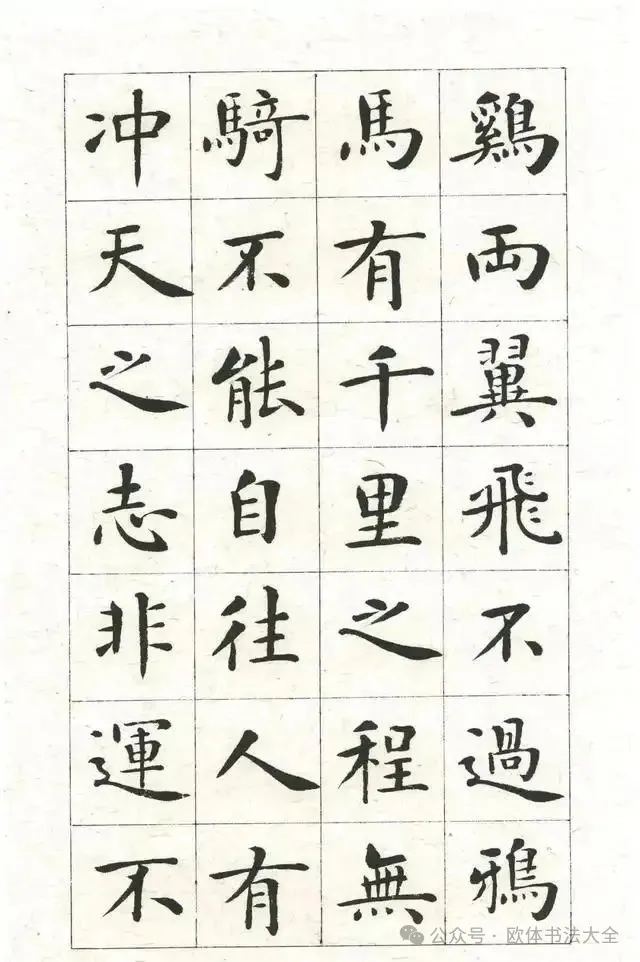 鷄両翼飛不過鴉
馬有千里之程無
騎不能自往人有
冲天之志非運不
公众号·欧体书法大全